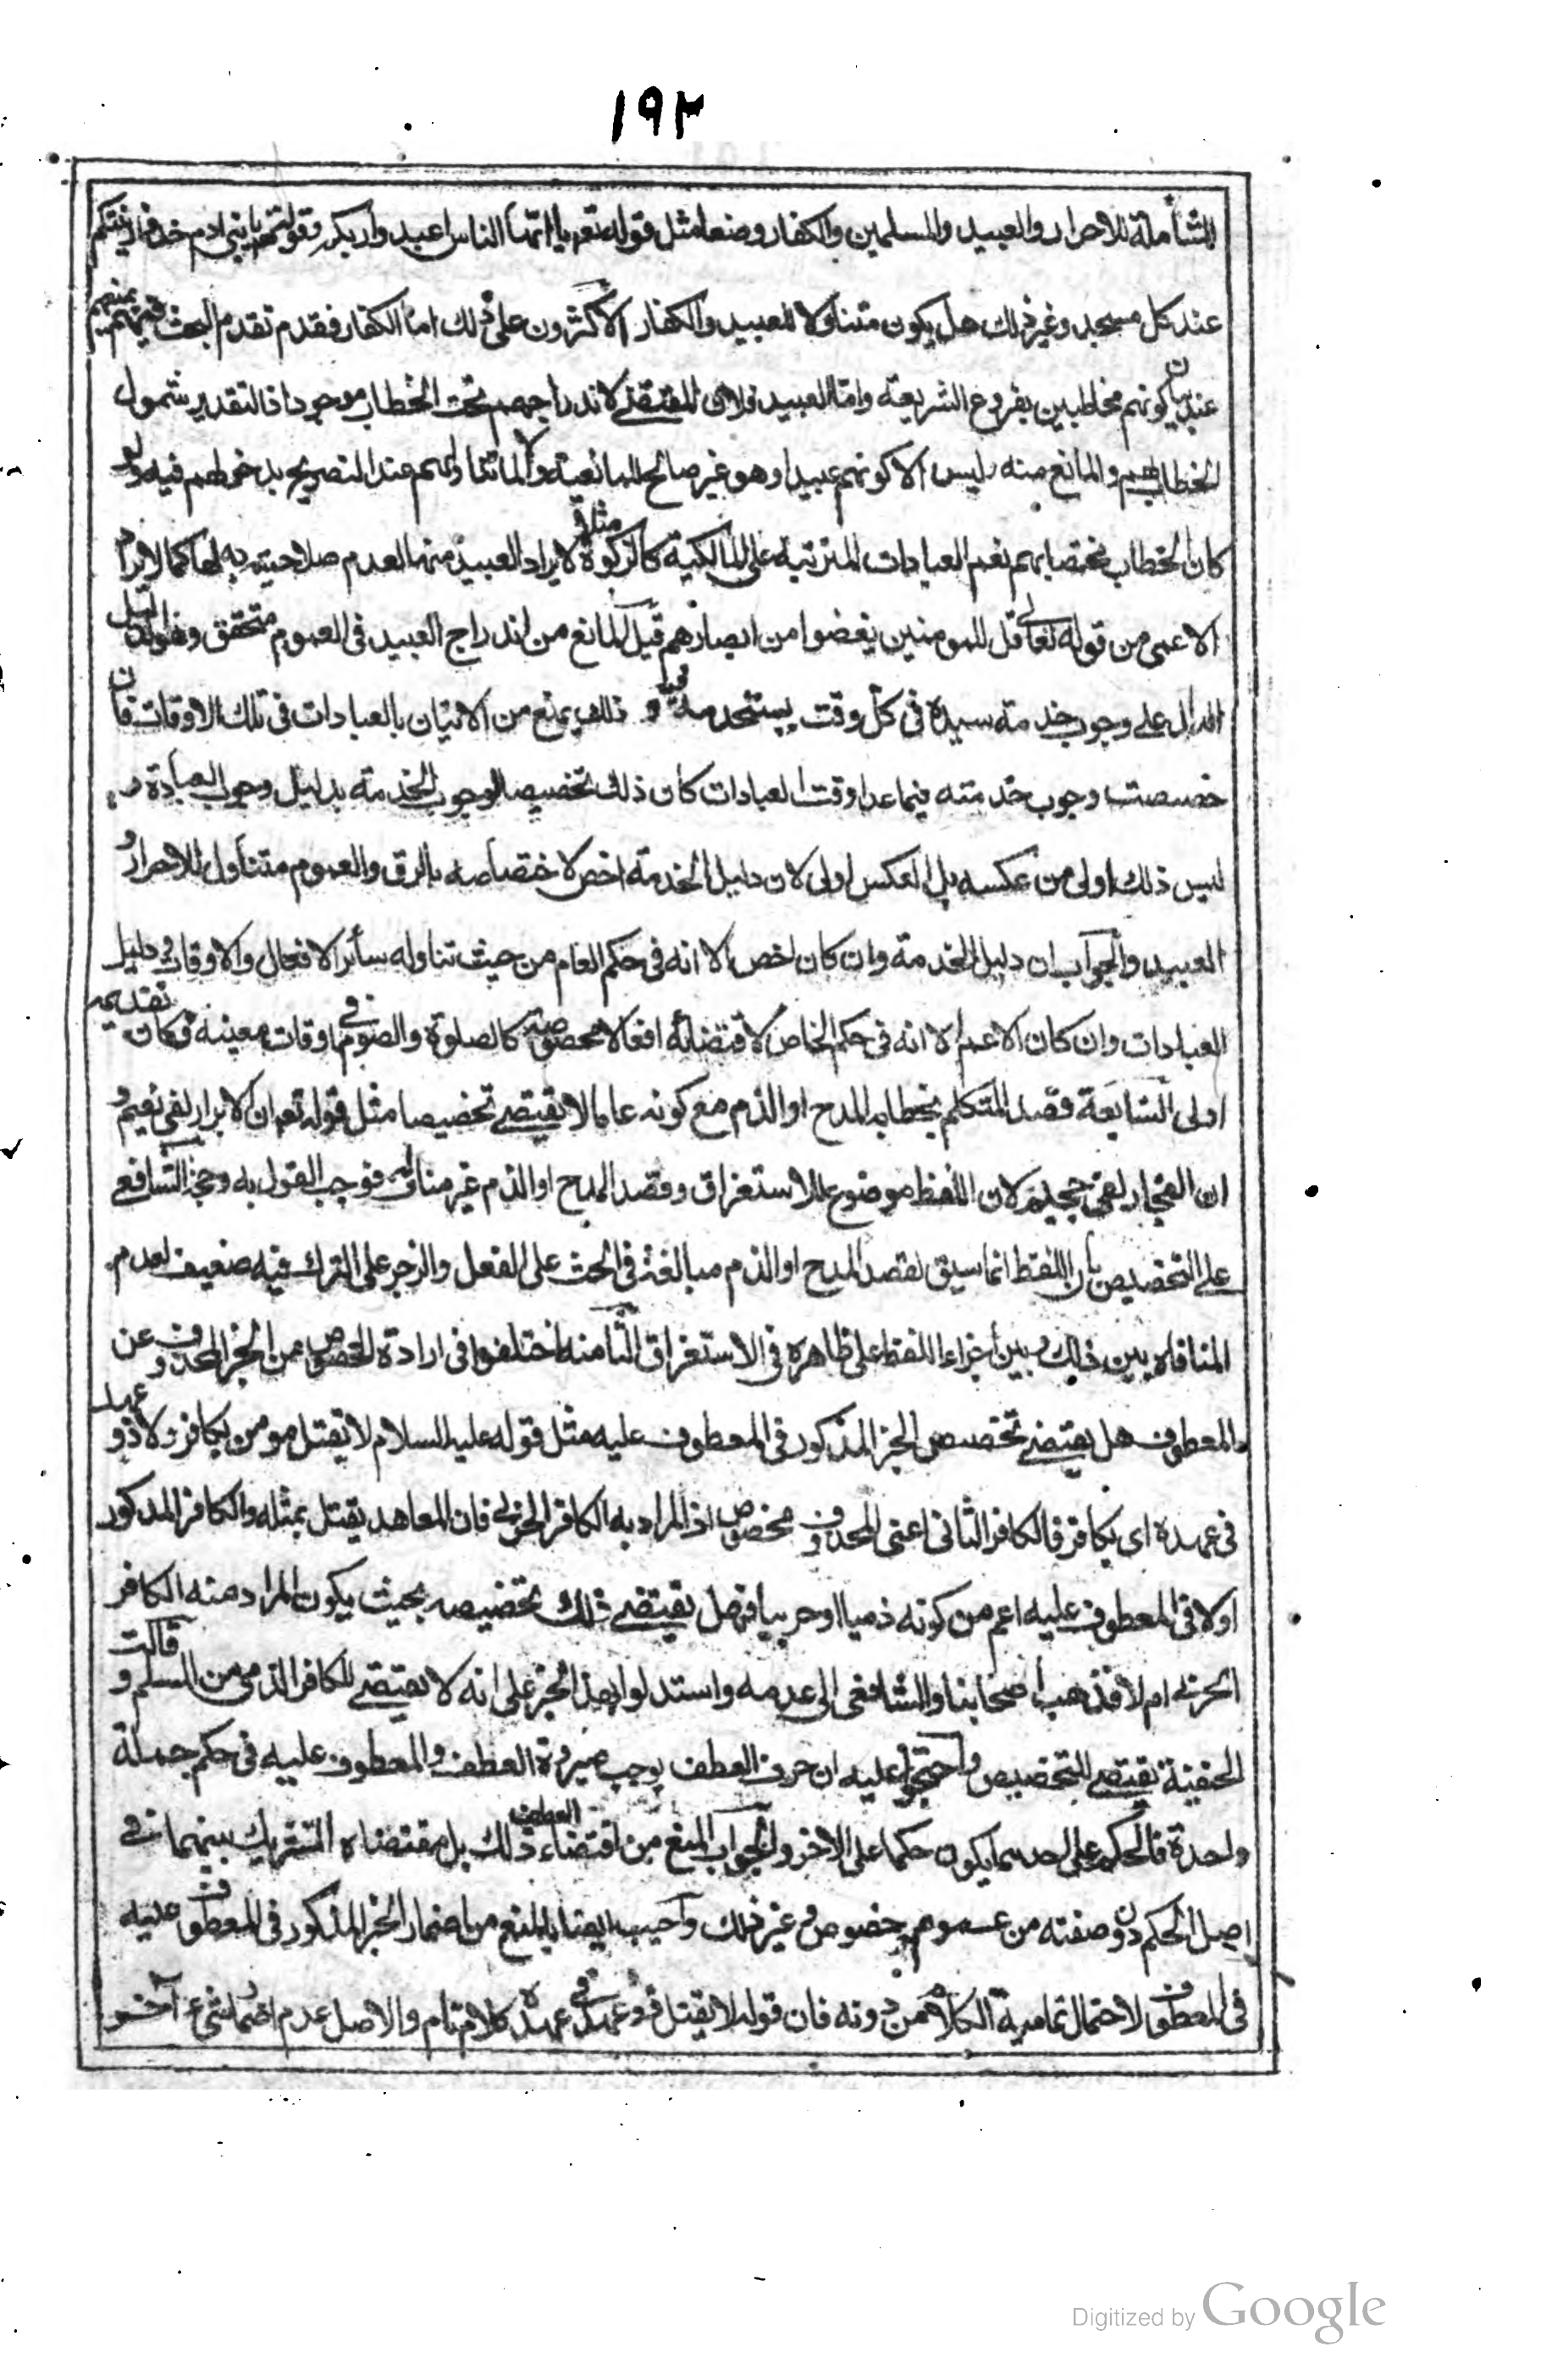 ١٩٢
الشاملة للاحرار والعبيد والمسلمين والكفار وضعا مثل قوله تعم يا ايها الناس اعبدوا ربكم وقوله تعم يا بنى ادم خذوا زينتكم
عند كل مسجد وغير ذلك هل يكون متناولا للعبيد والكفار الاكثرون على ذلك اما الكفار فقد تقدم البحث فيهم
عند بيان كونهم مخاطبين بفروع الشريعة واما العبيد فلان المقتضى لاندراجهم تحت الخطاب موجود اذ التقدير شمول
الخطاب لهم والمانع منه ليس الا كونهم عبيدا وهو غير صالح للمانعية والا لما تناولهم عند التصريح بدخولهم فيه ولو
كان الخطاب مختصا بهم نعم العبادات المترتبة على المالكية كالزكوة مثلا لا يراد العبيد منها لعدم صلاحيته لها كما لا يراد
الاعمى من قوله تعالى قل للمومنين يغضوا من ابصارهم قيل المانع من اندراج العبيد فى العموم متحقق وهو الدليل
الدال على وجوب خدمته سيده فى كل وقت يستخدمه فيه و ذلك يمنع من الاتيان بالعبادات فى تلك الاوقات فان
خصصت وجوب خدمته فيما عدا وقت العبادات كان ذلك تخصيصا لوجوب الخدمة بدليل وجوب العبادة و
ليس ذلك اولى من عكسه بل العكس اولى لان دليل الخدمة اخص لاختصاصه بالرق والعموم متناول للاحرار و
العبيد والجواب ان دليل الخدمة وان كان اخص الا انه فى حكم العام من حيث تناوله سائر الافعال والاوقات ودليل
العبادات وان كان الاعم الا انه فى حكم الخاص لاقتضائه افعالا مخصوصة كالصلوة والصوم فى اوقات معينه فكان تقديمه
اولى السابعة قصد المتكلم بخطابه المدح او الذم مع كونه عاما لا يقتضى تخصيصا مثل قوله تعم ان الابرار لفى نعيم و
ان الفجار لفى جحيم لان اللفظ موضوع للاستغراق وقصد المدح او الذم غير مناف له فوجب القول به وحجة الشافعى
على التخصيص بان اللفظ انما سيق لقصد المدح او الذم مبالغة فى الحث على الفعل والزجر على الترك فيه ضعيف لعدم
المنافاة بين ذلك وبين اجراء اللفظ على ظاهره فى الاستغراق الثامنة اختلفوا فى ارادة الخصوص من الخبر المحذوف عن
المعطوف هل يقتضى تخصيص الجز المذكور فى المعطوف عليه مثل قوله عليه السلام لا يقتل مومن بكافر ولا ذو عهد
فى عهده اى بكافر فالكافر الثانى اعنى المحذوف مخصوص اذ المراد به الكافر الحربى فان المعاهد يقتل بمثله والكافر المذكور
اولا فى المعطوف عليه اعم من كونه ذميا او حربيا فهل يقتضى ذلك تخصيصه بحيث يكون المراد منه الكافر
الحربى ام لا فذهب اصحابنا والشافعى الى عدمه واستدلوا بهذا الخبر على انه لا يقتضى للكافر الذمى من المسلم وقالت
الحنفية يقتضى التخصيص واحتجوا عليه ان حرف العطف يوجب صيرورة العطف والمعطوف عليه فى حكم جملة
واحدة فالحكم على احدهما يكون حكما على الاخر والجواب المنع من اقتضاء العطف ذلك بل مقتضاه التشريك بينهما فى
اصل الحكم دون صفته من عموم وخصوص و غير ذلك واجيب ايضا بالمنع من اضمار الجز المذكور فى المعطوف عليه
فى المعطوف لاحتمال تمامية الكلام من دونه فان قوله لا يقتل ذو عهد فى عهده كلام تام والاصل عدم اضمار شئ آخر
Digitized by Google